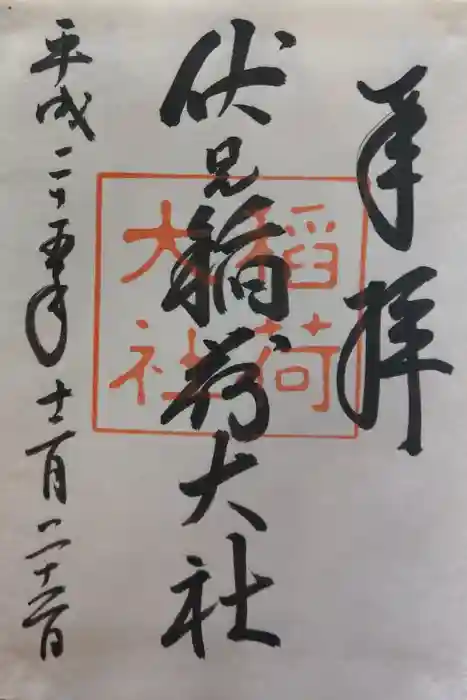 奉拝
伏見稲荷大社
稲荷
大社
平成二十五年十二月二十二日